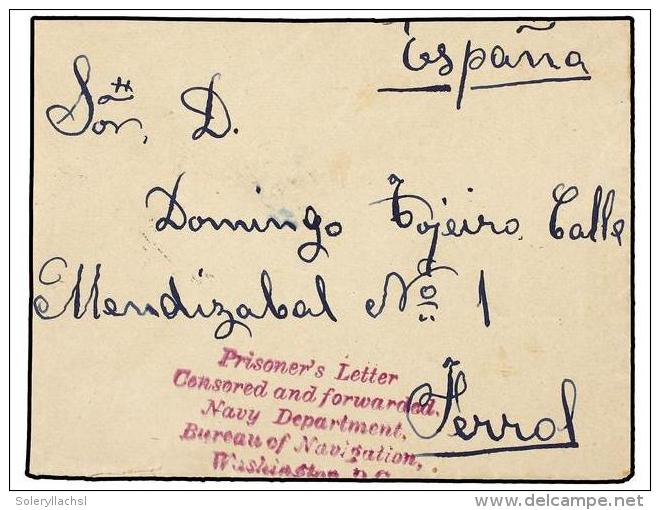 España
Sor, D.
Domingo Tojeiro Calle
Mendizabal Nº 1
Ferrol
Prisoner's Letter
Censored and forwarded.
Navy Department,
Bureau of Navigation,
Washington D.C.
Soleryllachsl
delcampe.net